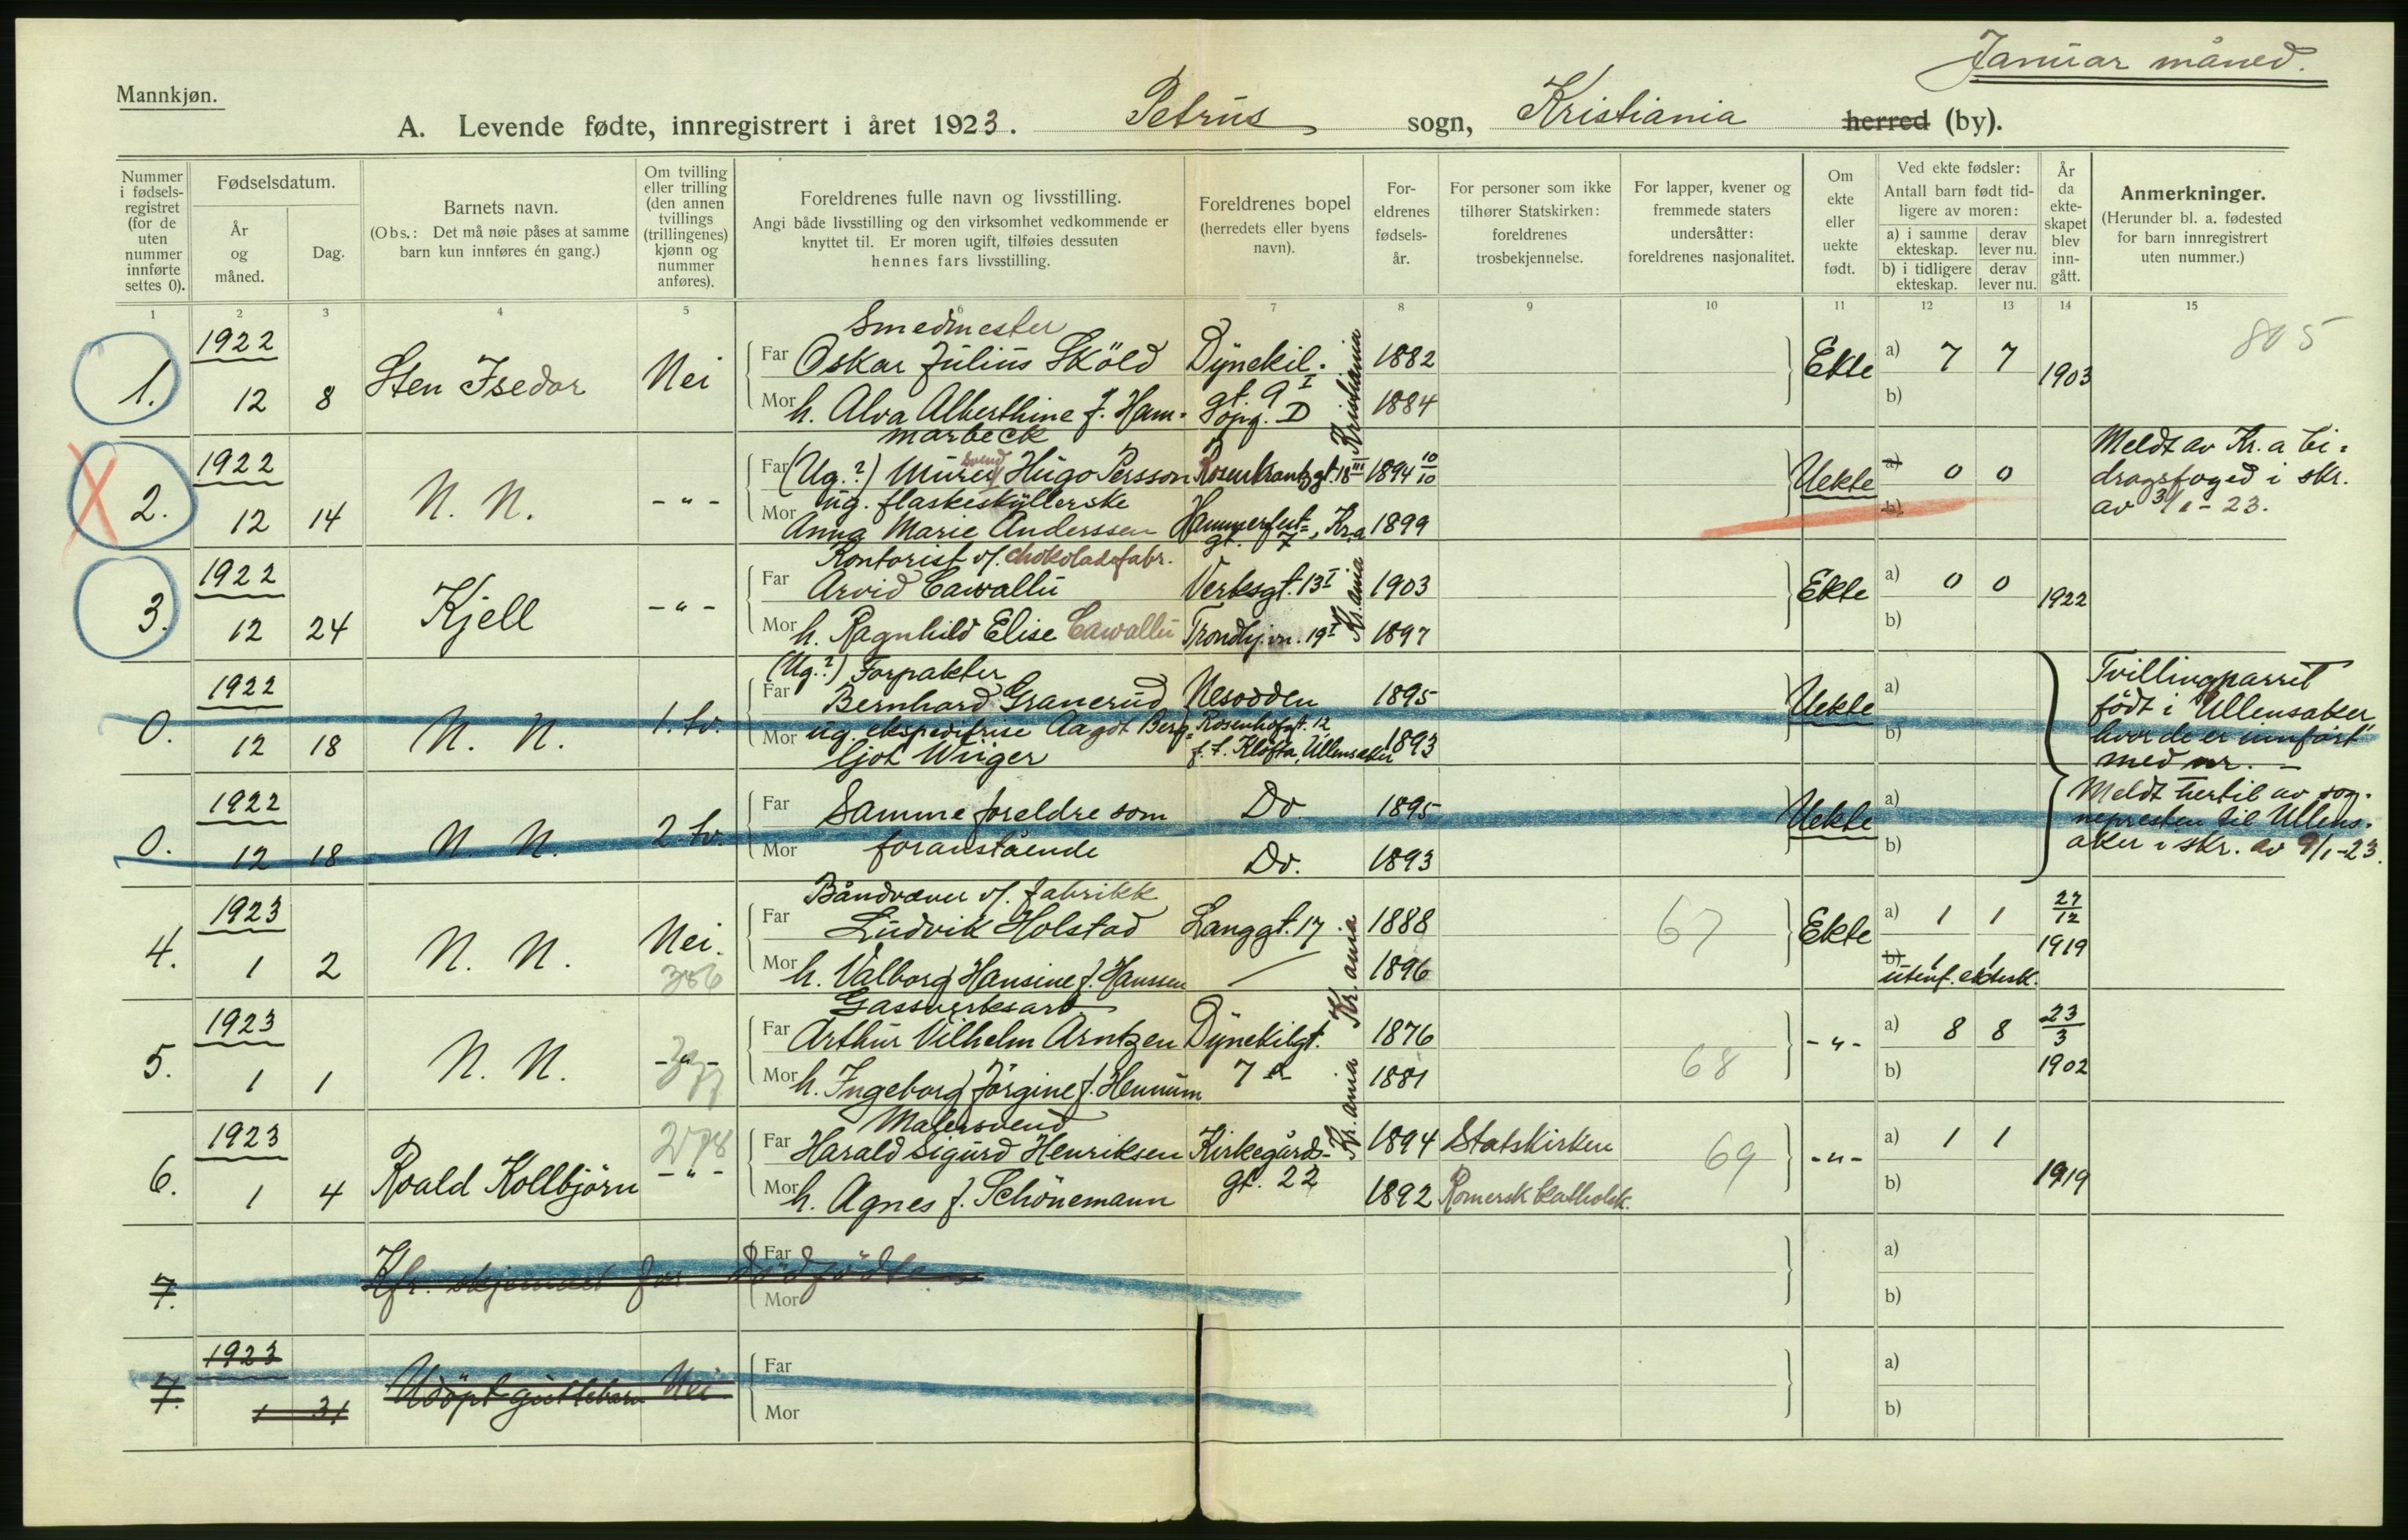 Januar måned.
Mannkjøn.
A. Levende fødte, innregistrert i året 1923. Petrus sogn, Kristiania herred (by).
Nummer i fødsels-registret (for de uten nummer innførte settes 0).
Fødselsdatum.
År og måned.
Dag.
Barnets navn.
(Obs.: Det må nøie påses at samme barn kun innføres én gang.)
Om tvilling eller trilling (den annen tvillings (trillingenes) kjønn og nummer anføres).
Foreldrenes fulle navn og livsstilling.
Angi både livsstilling og den virksomhet vedkommende er knyttet til. Er moren ugift, tilføies dessuten hennes fars livsstilling.
Foreldrenes bopel (herredets eller byens navn).
For-eldrenes fødsels-år.
For personer som ikke tilhører Statskirken: foreldrenes trosbekjennelse.
For lapper, kvener og fremmede staters undersåtter: foreldrenes nasjonalitet.
Om ekte eller uekte født.
Ved ekte fødsler:
Antall barn født tid-ligere av moren:
a) i samme ekteskap. derav lever nu.
b) i tidligere ekteskap. derav lever nu.
År da ekte-skapet blev inn-gått.
Anmerkninger.
(Herunder bl. a. fødested for barn innregistrert uten nummer.)
1 2 3 4 5 6 7 8 9 10 11 12 13 14 15
805
Smedmester
1922
1. 12 8 Sten Isedor Nei
Far Oskar Julius Sköld Dynekil. 1882
Mor h. Alva Alberthine f. Ham-marbeck gt. 9 I opg. D Kristiania 1884
Ekte a) 7 7 b) 1903
1922
2. 12 14 N. N. -"-
Far (Ug.?) Murersvend Hugo Persson Rosenkrantzgt. 18 III 1894 10/10
Mor ug. flaskeskyllerske
Anna Marie Anderssen Hammerfest-gt. 7, Kr.a 1899
Uekte a) 0 0 b)
Meldt av Kr.a bi-
dragsfoged i skr.
av 3/1-23.
Kontorist v/. Chokoladefabr.
1922
3. 12 24 Kjell -"-
Far Arvid Cawallu Verksgt. 13 I 1903
Mor h. Ragnhild Elise Cawallu Trondhj.vn. 19 I Kr.ania 1897
Ekte a) 0 0 b) 1922
(Ug.?) Forpakter
1922
0. 12 18 N. N. 1. tv.
Far Bernhard Granerud Nesodden 1895
Mor ug. ekspeditrise Aagot Berg- Rosenhofgt. 12
ljot Wiiger f. t. Kløfta, Ullensaker 1893
Uekte a) b)
Tvillingparret
født i Ullensaker,
hvor de er innført
med nr. -
1922
0. 12 18 N. N. 2. tv.
Far Samme foreldre som Do. 1895
Mor foranstående Do. 1893
Uekte a) b)
Meldt hertil av sog-
nepresten til Ullens-
aker i skr. av 9/1-23.
Båndvæver v/. fabrikk
1923
4. 1 2 N. N. Nei.
Far Ludvik Holstad Langgt. 17. 1888
Mor h. Valborg Hansine f. Hanssen Kr.ania 1896
67
Ekte a) 1 1 b) 1 1 utenf. ektesk. 27/12 1919
Gassverksarb.
1923
5. 1 1 N. N. -"-
Far Arthur Vilhelm Arntzen Dynekilgt. 1876
Mor h. Ingeborg Jørgine f. Hennum 7 a Kr.ania 1881
68
-"- a) 8 8 b) 23/3 1902
Malersvend
1923
6. 1 4 Roald Kollbjørn -"-
Far Harald Sigurd Henriksen Kirkegårds- 1894 Statskirken
Mor h. Agnes f. Schönemann gt. 22 1892 Romersk katholsk.
69
-"- a) 1 1 b) 1919
7. Kfr. skjemaet for dødfødte.
Far
Mor
a)
b)
1923
7. 1 31 Udöpt guttebarn Nei
Far
Mor
a)
b)